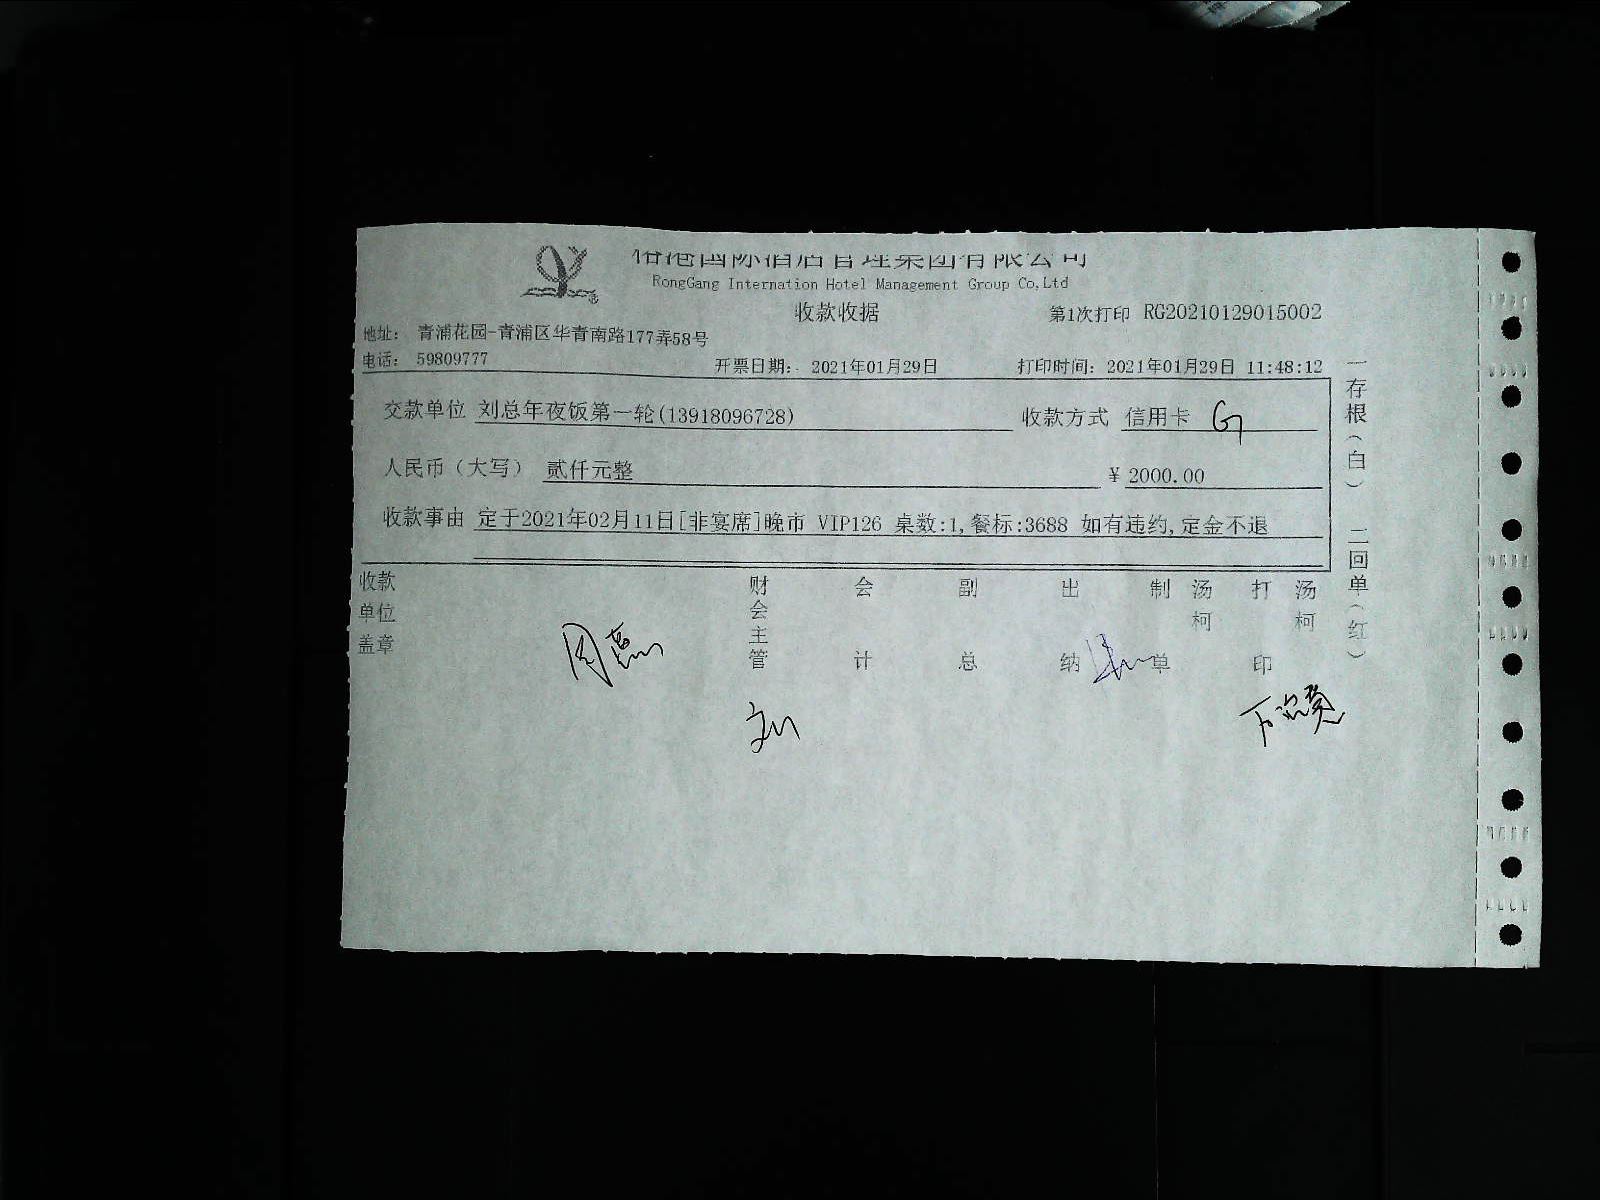 国际酒店管理集团有限公司
RongGang Internation Hotel Management Group Co,Ltd
收款收据
第1次打印 RG20210129015002
地址: 青浦花园-青浦区华青南路177弄58号
电话: 59809777
开票日期: 2021年01月29日
打印时间: 2021年01月29日 11:48:12
交款单位 刘总年夜饭第一轮(13918096728) 收款方式 信用卡 G
人民币(大写) 贰仟元整 ¥ 2000.00
收款事由 定于2021年02月11日[非宴席]晚市 VIP126 桌数:1,餐标:3688 如有违约,定金不退
收款单位盖章
财会主管
会计
副总
出纳
制单
汤柯
打印
汤柯
刘
一存根(白) 二回单(红)